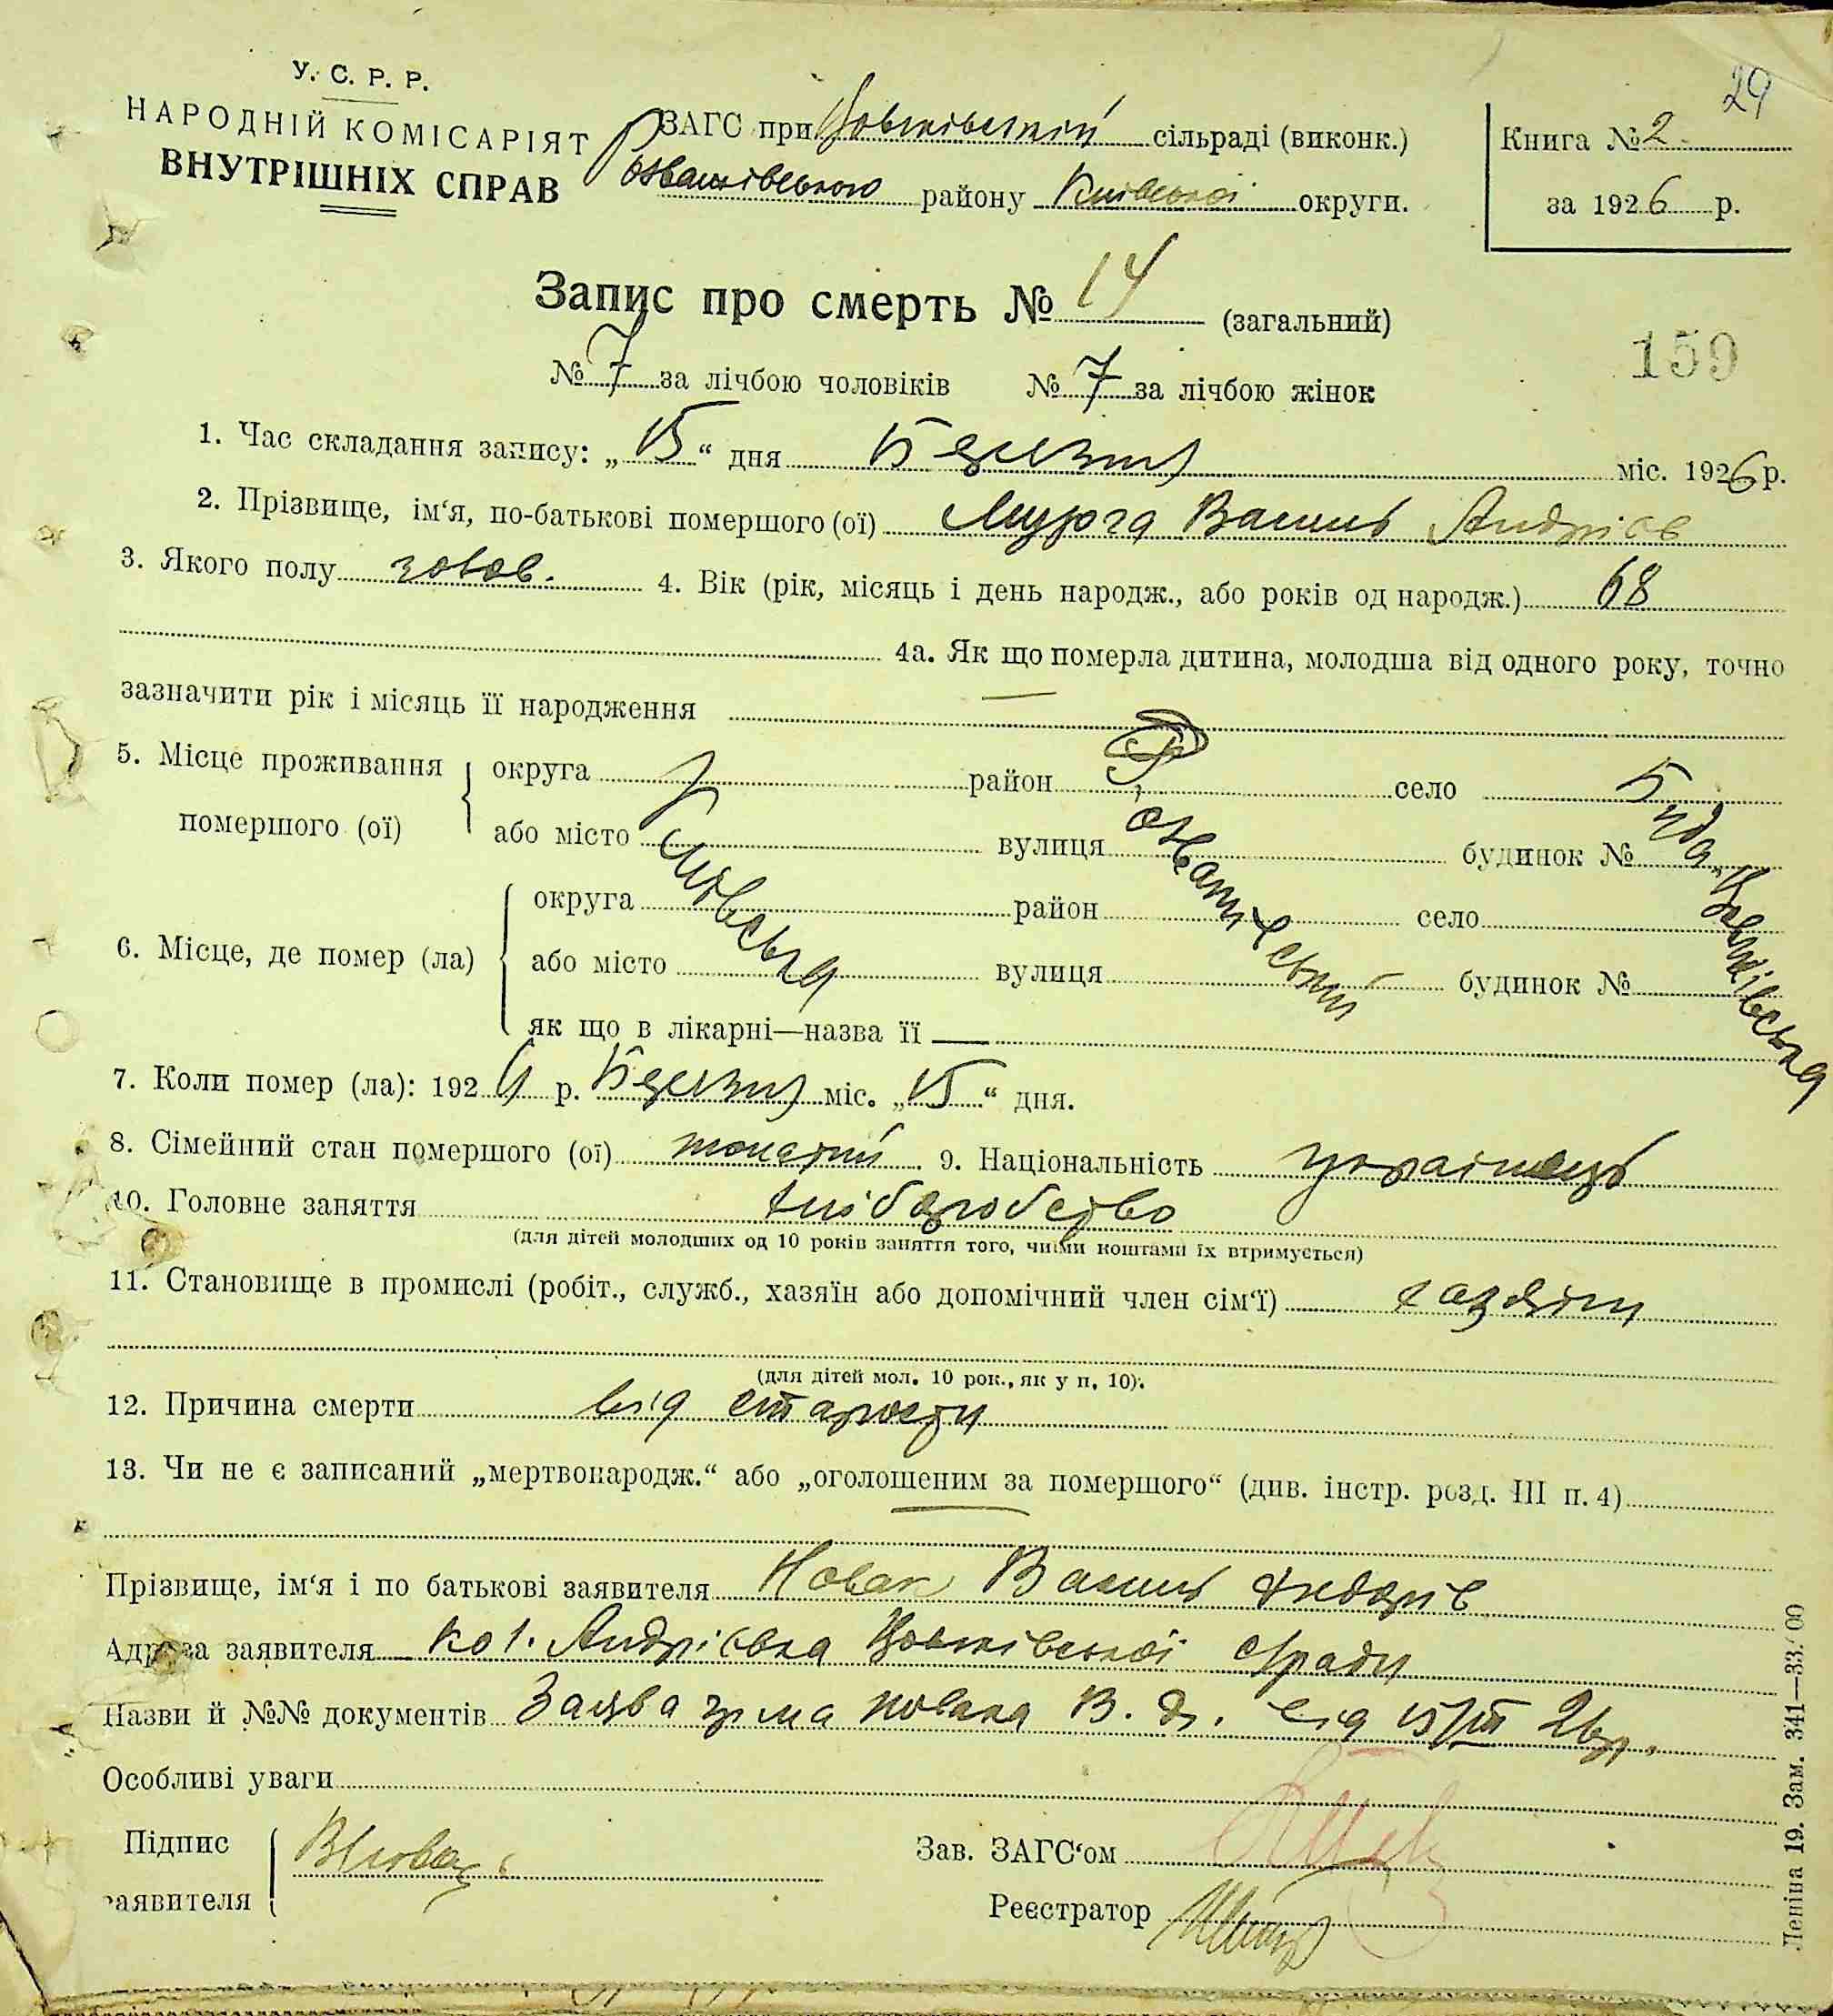 29
У. С. Р. Р.
НАРОДНІЙ КОМІСАРІЯТ
ВНУТРІШНІХ СПРАВ
ЗАГС при сільраді (виконк.)
району Київської округи.
Книга № 2
за 1926 р.
Запис про смерть № 14 (загальний)
159
№ 7 за лічбою чоловіків № 7 за лічбою жінок
1. Час складання запису: „15“ дня Березня міс. 1926 р.
2. Прізвище, ім‘я, по-батькові помершого (ої) Мурга Василь Андрієв
3. Якого полу чолов. 4. Вік (рік, місяць і день народж., або років од народж.) 68
4а. Як що померла дитина, молодша від одного року, точно
зазначити рік і місяць її народження —
5. Місце проживання помершого (ої) округа Київська район село Буда
або місто вулиця будинок №
6. Місце, де помер (ла) округа район село
або місто вулиця будинок №
як що в лікарні—назва її —
7. Коли помер (ла): 192 р. Березня міс. „15“ дня.
8. Сімейний стан помершого (ої) жонатий 9. Національність українець
10. Головне заняття хліборобство
(для дітей молодших од 10 років заняття того, чиїми коштами їх втримується)
11. Становище в промислі (робіт., служб., хазяїн або допомічний член сім‘ї) хазяїн
(для дітей мол. 10 рок., як у п. 10).
12. Причина смерти від старости
13. Чи не є записаний „мертвонародж.“ або „оголошеним за помершого“ (див. інстр. розд. III п. 4)
—
Прізвище, ім‘я і по батькові заявителя Новак Василь Федорів
Адреса заявителя кол. Андріївка с/ради
Назви й №№ документів Заява гр-на Новака В. Ф. від 15/III 26 р.
Особливі уваги
Підпис заявителя
Зав. ЗАГС‘ом
Реєстратор
Леніна 19. Зам. 341—33.000